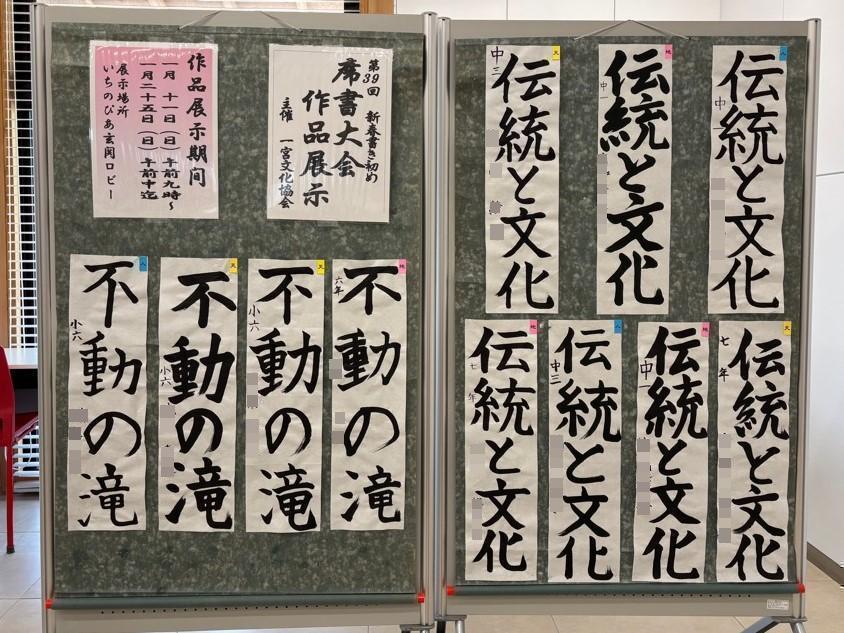 第39回 新春書き初め
席書大会
作品展示
主催 一宮文化協会
作品展示期間
一月 十一日(日)午前九時~
一月二十五日(日)午前十迄
展示場所
いちのぴあ玄関ロビー
地
不動の滝
六年
天
不動の滝
小六
天
不動の滝
小六
人
不動の滝
小六
人
伝統と文化
中一
地
伝統と文化
中一
天
伝統と文化
中三
天
伝統と文化
七年
地
伝統と文化
中一
人
伝統と文化
中三
地
伝統と文化
七年